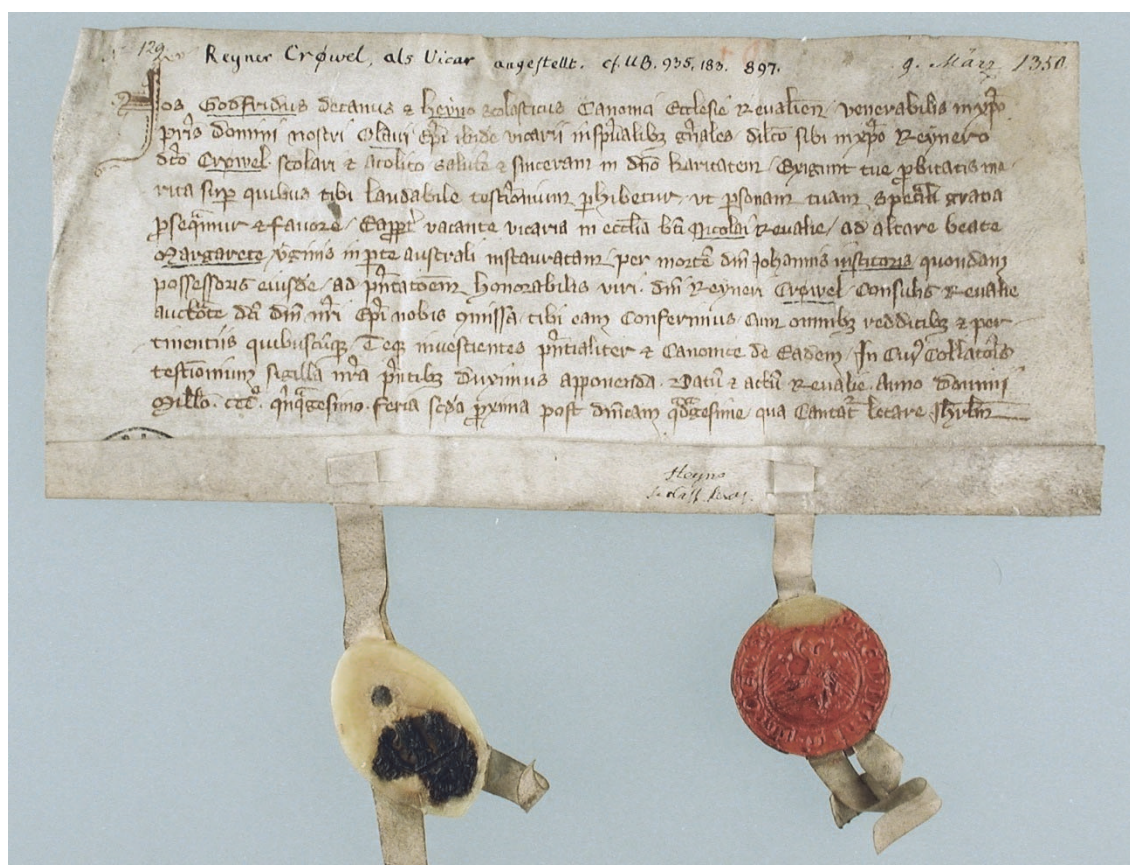 129
Reyner Crøwel, als Vicar angestellt. cf. UB. 935, 183. 897.
9. März 1350
Nos Godfridus decanus & Heyno scolasticus Canonici Ecclesie Revalien venerabilis in xpo
pris domini nostri Olavi Epi ibidē vicarii in spualibȝ gn̄ales dilco sibi in xpo Reynero
dco Crøwel scolari & Acolito salutē & sinceram in dn̄o karitatem Exigunt tue pbitatis me
rita sup quibus tibi laudabile testionium phibetur ut psonam tuam speali gratia
pseqimur & favore Eappt vacante vicaria in ecclia bti Nicolai Revalie ad altare beate
Margarete v̄ginis in pte australi instauratam per mortē dn̄i Johannis institoris quondam
possessoris eiusdē ad pn̄tatoēm honorabilis viri dn̄i Reyneri Crøwel Consulis Revalie
auctōte dcī dn̄i nr̄i Epi nobis ɔmissa tibi eam Conferimus Cum omnibȝ redditibȝ & per
tinentiis quibuscūqȝ Teqȝ investientes pn̄tialiter & Canonice de Eadem In Cuiꝰ Collatōis
testionium sigilla nr̄a pn̄tibȝ duximus apponenda Datū & actū Revalie Anno domini
Millo CCCo qn̄qgesimo feria scda pxima post dn̄icam qdgesime qua Cantat letare Jhrlm
Heyno